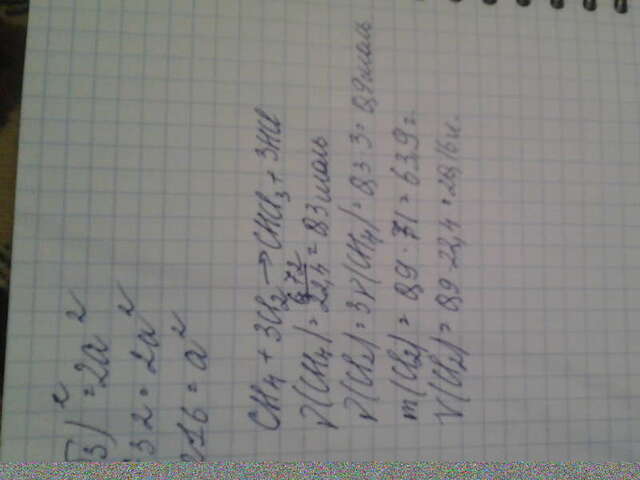 3)² = 2a²
32 = 2a²
16 = a²
CH₄ + 3Cl₂ → CHCl₃ + 3HCl
ν(CH₄) = 6,72/22,4 = 0,3 моль
ν(Cl₂) = 3ν(CH₄) = 0,3·3 = 0,9 моль
m(Cl₂) = 0,9 · 71 = 63,9 г
V(Cl₂) = 0,9·22,4 = 20,16 л.